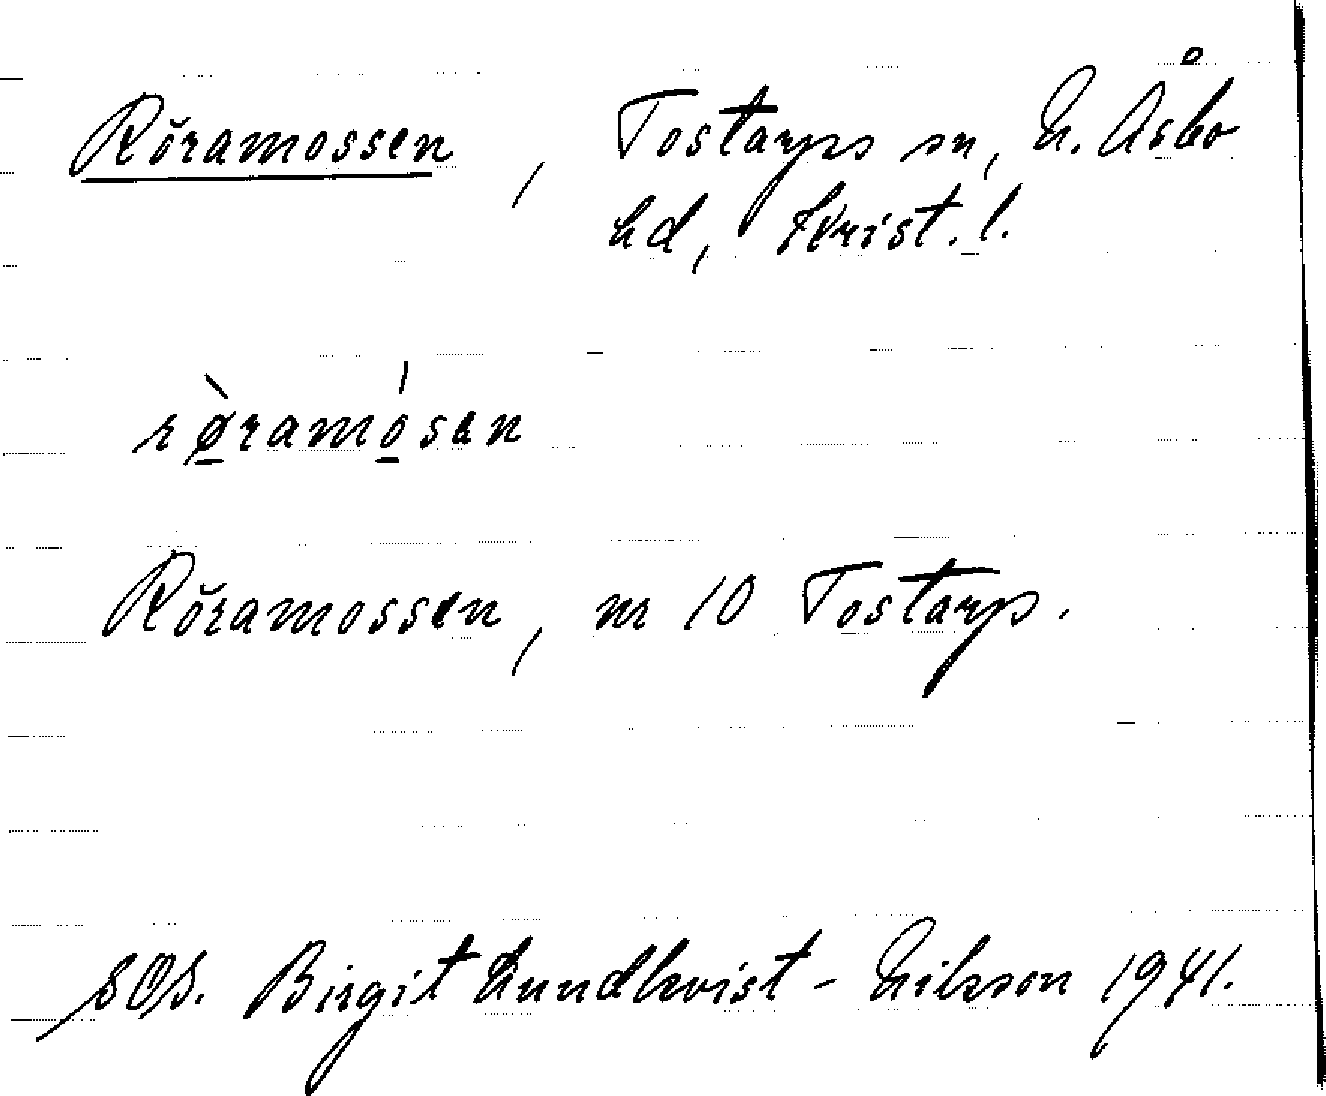 Röramossen, Tostarps sn, N. Åsbo
hd, Krist. l.
rø̠̀ramó̠sen
Röramossen, nr 10 Tostarp.
SOS. Birgit Lundkvist - Nilsson 1941.